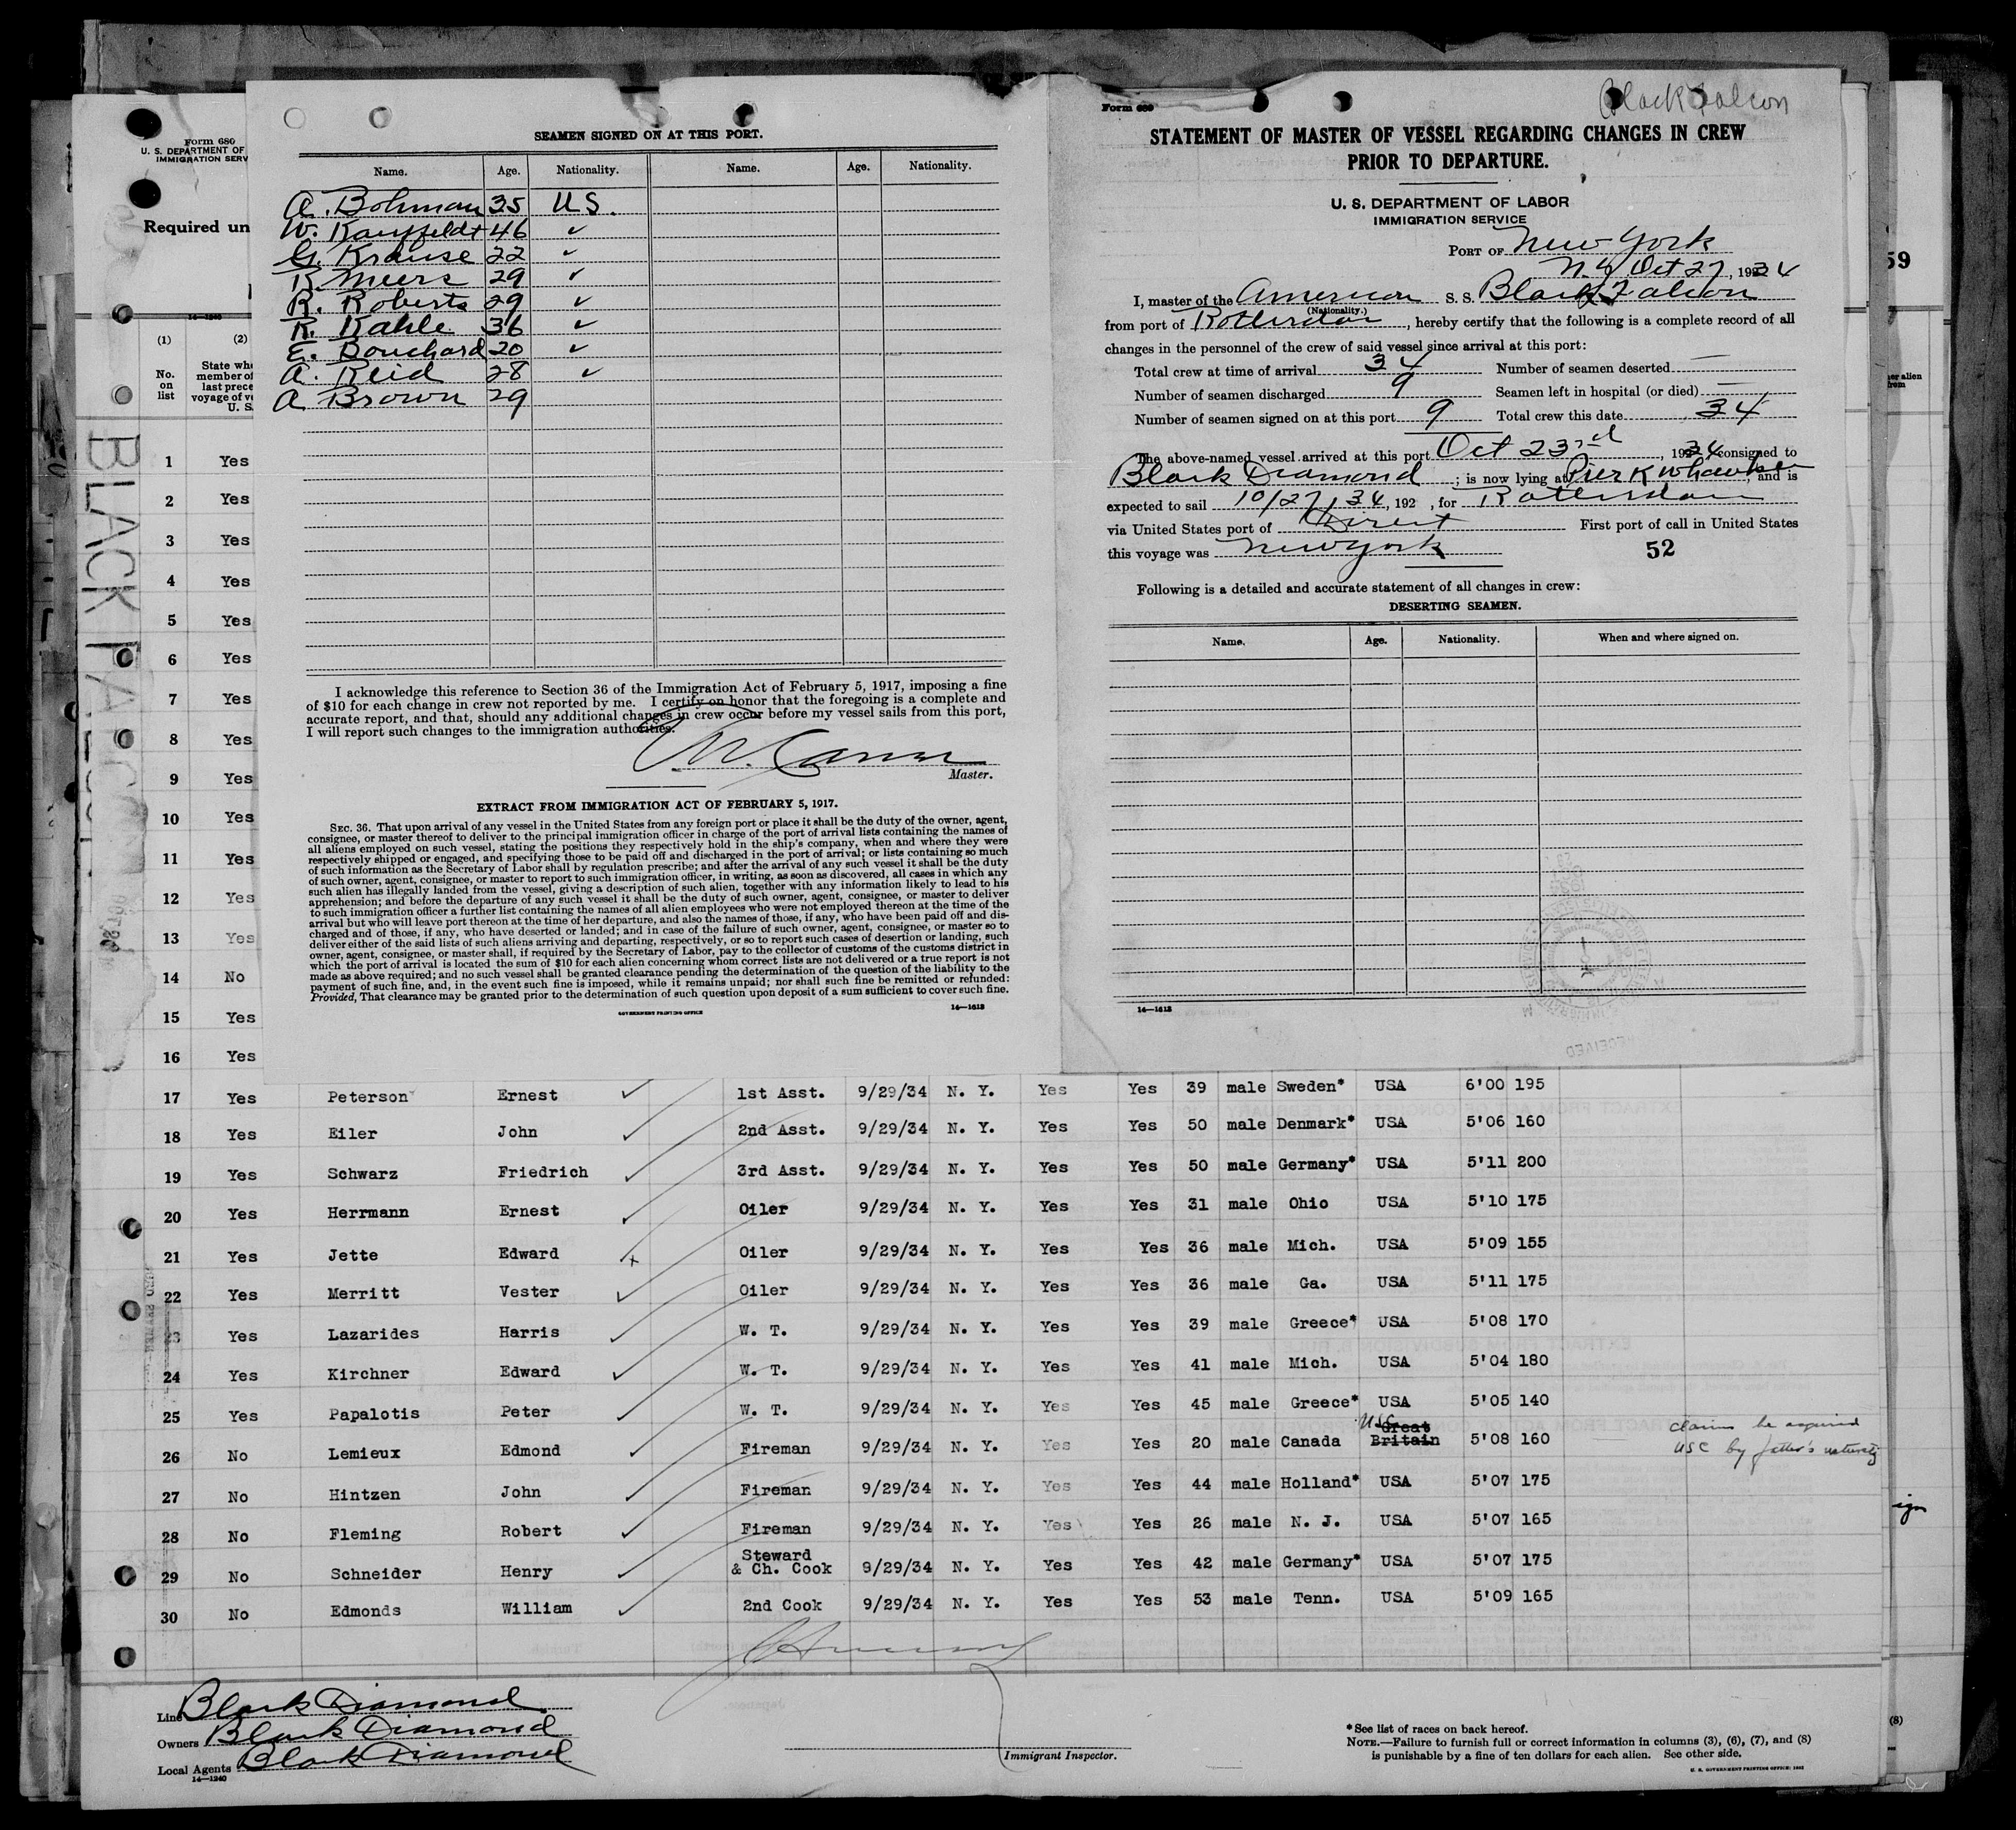 Form 680
U. S. DEPARTMENT OF
IMMIGRATION SERV
Required un
14—1240
(1)
No.
on
list
(2)
State whe
member of
last prece
voyage of ve
U. S.
BLACK FALCON
1 Yes
2 Yes
3 Yes
4 Yes
5 Yes
6 Yes
7 Yes
8 Yes
9 Yes
10 Yes
11 Yes
12 Yes
13 Yes
14 No
15 Yes
16 Yes
SEAMEN SIGNED ON AT THIS PORT.
Name. Age. Nationality. Name. Age. Nationality.
A. Bohman 35 U.S.
W. 46 ✓
G. Krause 22 ✓
R. Meers 29 ✓
R. Roberts 29 ✓
R. Kahle 36 ✓
E. Bouchard 20 ✓
A. Reid 28 ✓
A Brown 29
I acknowledge this reference to Section 36 of the Immigration Act of February 5, 1917, imposing a fine
of $10 for each change in crew not reported by me. I certify on honor that the foregoing is a complete and
accurate report, and that, should any additional changes in crew occur before my vessel sails from this port,
I will report such changes to the immigration authorities.
Master.
EXTRACT FROM IMMIGRATION ACT OF FEBRUARY 5, 1917.
SEC. 36. That upon arrival of any vessel in the United States from any foreign port or place it shall be the duty of the owner, agent,
consignee, or master thereof to deliver to the principal immigration officer in charge of the port of arrival lists containing the names of
all aliens employed on such vessel, stating the positions they respectively hold in the ship's company, when and where they were
respectively shipped or engaged, and specifying those to be paid off and discharged in the port of arrival; or lists containing so much
of such information as the Secretary of Labor shall by regulation prescribe; and after the arrival of any such vessel it shall be the duty
of such owner, agent, consignee, or master to report to such immigration officer, in writing, as soon as discovered, all cases in which any
such alien has illegally landed from the vessel, giving a description of such alien, together with any information likely to lead to his
apprehension; and before the departure of any such vessel it shall be the duty of such owner, agent, consignee, or master to deliver
to such immigration officer a further list containing the names of all alien employees who were not employed thereon at the time of the
arrival but who will leave port thereon at the time of her departure, and also the names of those, if any, who have been paid off and dis-
charged and of those, if any, who have deserted or landed; and in case of the failure of such owner, agent, consignee, or master so to
deliver either of the said lists of such aliens arriving and departing, respectively, or so to report such cases of desertion or landing, such
owner, agent, consignee, or master shall, if required by the Secretary of Labor, pay to the collector of customs of the customs district in
which the port of arrival is located the sum of $10 for each alien concerning whom correct lists are not delivered or a true report is not
made as above required; and no such vessel shall be granted clearance pending the determination of the question of the liability to the
payment of such fine, and, in the event such fine is imposed, while it remains unpaid; nor shall such fine be remitted or refunded:
Provided, That clearance may be granted prior to the determination of such question upon deposit of a sum sufficient to cover such fine.
GOVERNMENT PRINTING OFFICE 14—1613
Form 689
Black Falcon
STATEMENT OF MASTER OF VESSEL REGARDING CHANGES IN CREW
PRIOR TO DEPARTURE.
U. S. DEPARTMENT OF LABOR
IMMIGRATION SERVICE
PORT OF New York
N.Y. Oct 27, 1934
I, master of the American S. S. Black Falcon
(Nationality.)
from port of Rotterdam, hereby certify that the following is a complete record of all
changes in the personnel of the crew of said vessel since arrival at this port:
Total crew at time of arrival 34 Number of seamen deserted —
Number of seamen discharged 9 Seamen left in hospital (or died) —
Number of seamen signed on at this port 9 Total crew this date 34
The above-named vessel arrived at this port Oct 23rd, 1934 consigned to
Black Diamond; is now lying at Pier K Whawken, and is
expected to sail 10/27/34, 192 , for Rotterdam
via United States port of Direct First port of call in United States
this voyage was New York 52
Following is a detailed and accurate statement of all changes in crew:
DESERTING SEAMEN.
Name. Age. Nationality. When and where signed on.
14—1613
RECEIVED
59
er alien
from
17 Yes Peterson Ernest ✓ 1st Asst. 9/29/34 N. Y. Yes Yes 39 male Sweden* USA 6'00 195
18 Yes Eiler John ✓ 2nd Asst. 9/29/34 N. Y. Yes Yes 50 male Denmark* USA 5'06 160
19 Yes Schwarz Friedrich ✓ 3rd Asst. 9/29/34 N. Y. Yes Yes 50 male Germany* USA 5'11 200
20 Yes Herrmann Ernest ✓ Oiler 9/29/34 N. Y. Yes Yes 31 male Ohio USA 5'10 175
21 Yes Jette Edward x Oiler 9/29/34 N. Y. Yes Yes 36 male Mich. USA 5'09 155
22 Yes Merritt Vester ✓ Oiler 9/29/34 N. Y. Yes Yes 36 male Ga. USA 5'11 175
23 Yes Lazarides Harris ✓ W. T. 9/29/34 N. Y. Yes Yes 39 male Greece* USA 5'08 170
24 Yes Kirchner Edward ✓ W. T. 9/29/34 N. Y. Yes Yes 41 male Mich. USA 5'04 180
25 Yes Papalotis Peter ✓ W. T. 9/29/34 N. Y. Yes Yes 45 male Greece* USA 5'05 140
26 No Lemieux Edmond Fireman 9/29/34 N. Y. Yes Yes 20 male Canada USC Great Britain 5'08 160 claims he acquired
USC by father's
27 No Hintzen John ✓ Fireman 9/29/34 N. Y. Yes Yes 44 male Holland* USA 5'07 175
28 No Fleming Robert ✓ Fireman 9/29/34 N. Y. Yes Yes 26 male N. J. USA 5'07 165
29 No Schneider Henry ✓ Steward & Ch. Cook 9/29/34 N. Y. Yes Yes 42 male Germany* USA 5'07 175
30 No Edmonds William ✓ 2nd Cook 9/29/34 N. Y. Yes Yes 53 male Tenn. USA 5'09 165
Line Black Diamond
Owners Black Diamond
Local Agents Black Diamond
14—1240
Immigrant Inspector.
*See list of races on back hereof.
NOTE.—Failure to furnish full or correct information in columns (3), (6), (7), and (8)
is punishable by a fine of ten dollars for each alien. See other side.
U. S. GOVERNMENT PRINTING OFFICE: 1932
(8)